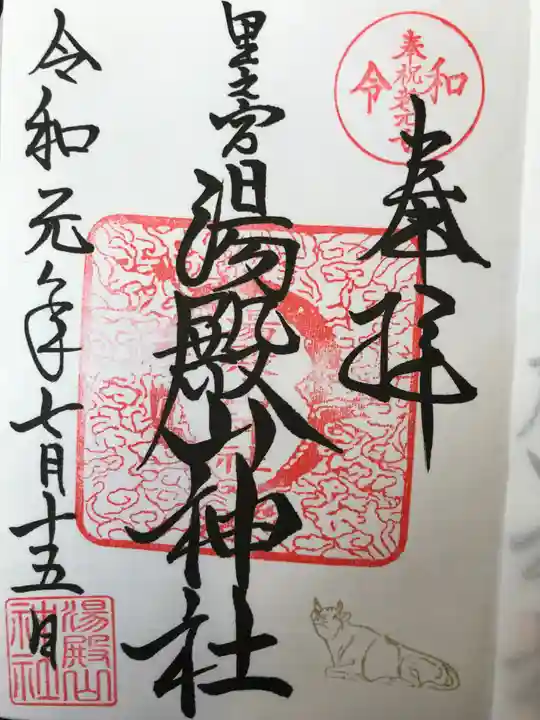 奉拝
令和
奉祝
里之宮
湯殿山神社
令和元年七月十五日
湯殿山
神社